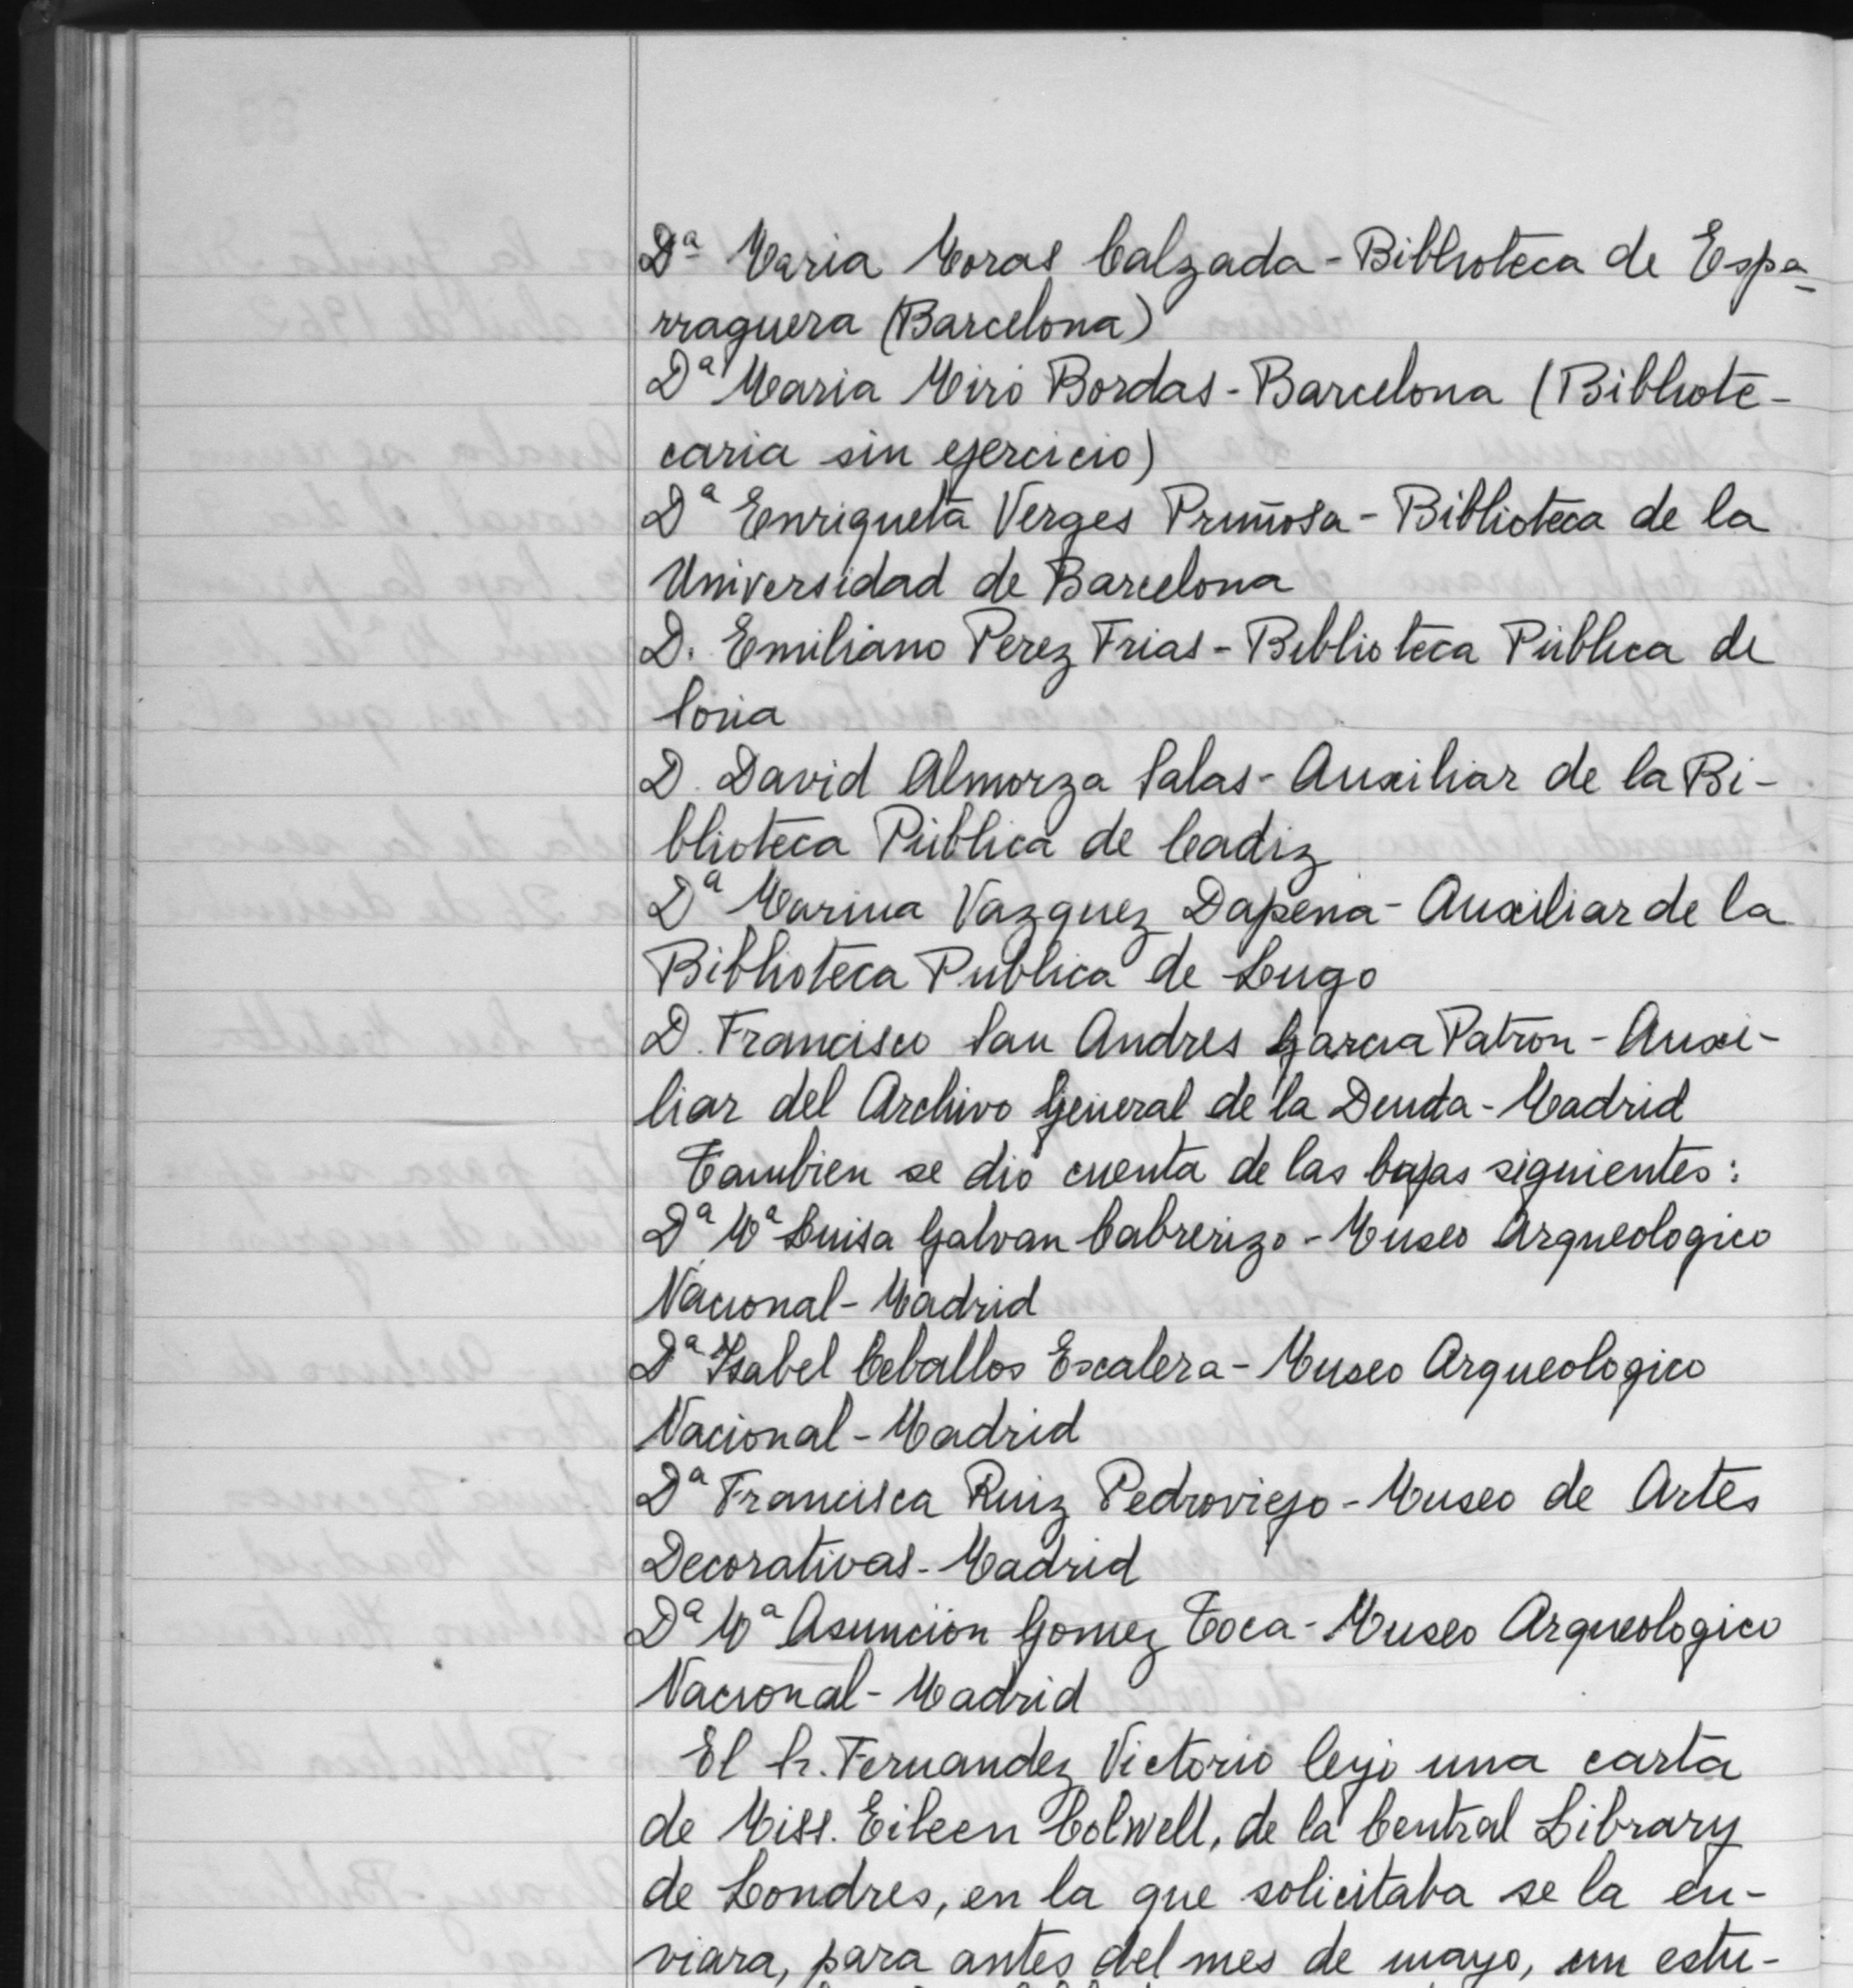 Dª Maria Moras Calzada - Biblioteca de Espa-
rraguera (Barcelona)
Dª Maria Miró Bordas - Barcelona (Bibliote-
caria sin ejercicio)
Dª Enriqueta Verges Pruñosa - Biblioteca de la
Universidad de Barcelona
D. Emiliano Perez Frias - Biblioteca Pública de
Soria
D. David Almorza Salas - Auxiliar de la Bi-
blioteca Pública de Cadiz
Dª Marina Vazquez Dapena - Auxiliar de la
Biblioteca Publica de Lugo
D. Francisco San Andres Garcia Patron - Auxi-
liar del Archivo General de la Deuda - Madrid
Tambien se dió cuenta de las bajas siguientes:
Dª Mª Luisa Galvan Cabrerizo - Museo Arqueologico
Nacional - Madrid
Dª Isabel Ceballos Escalera - Museo Arqueologico
Nacional - Madrid
Dª Francisca Ruiz Pedroviejo - Museo de Artes
Decorativas - Madrid
Dª Mª Asunción Gomez Toca - Museo Arqueologico
Nacional - Madrid
El Sr. Fernandez Victorio leyó una carta
de Miss. Eileen Colwell, de la Central Library
de Londres, en la que solicitaba se la en-
viara, para antes del mes de mayo, un estu-